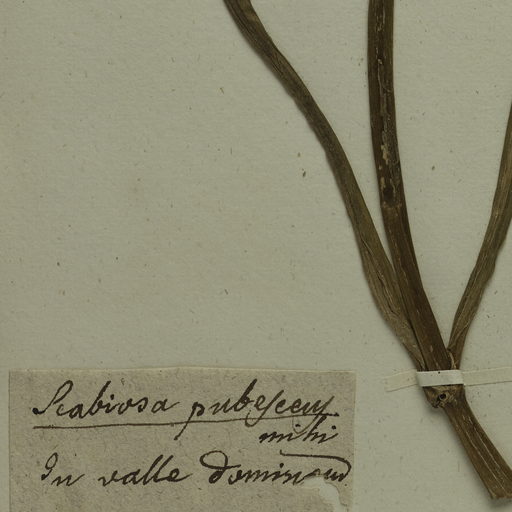 Scabiosa pubescens
mihi
In valle